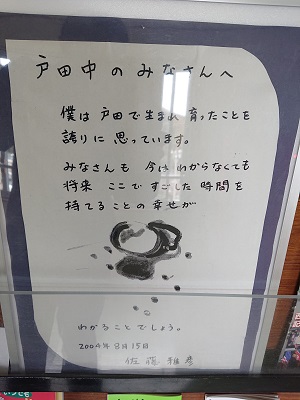 戸田中のみなさんへ
僕は戸田で生まれ育ったことを
誇りに思っています。
みなさんも 今はわからなくても
将来 ここですごした時間を
持てることの幸せが
わかることでしょう。
2004年8月15日
佐藤雅彦